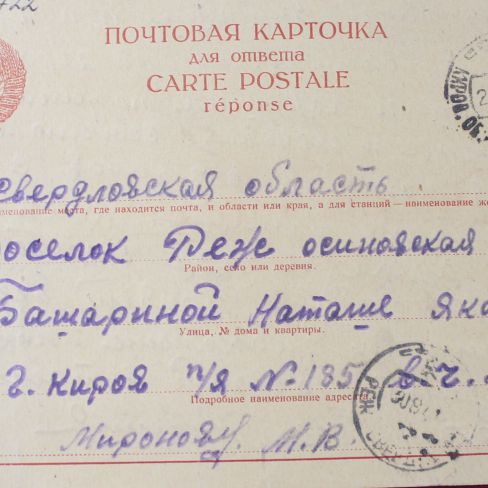 722
ПОЧТОВАЯ КАРТОЧКА
для ответа
CARTE POSTALE
réponse
КИРОВ
Свердловская область
наименование места, где находится почта, и области или края, а для станций—наименование же
поселок Реж осиновская
Район, село или деревня.
Башариной Наташе Яко
Улица, № дома и квартиры.
г. Киров п/я № 185 в.ч.
Подробное наименование адресата
РЕЖ
Миронову. М. В.